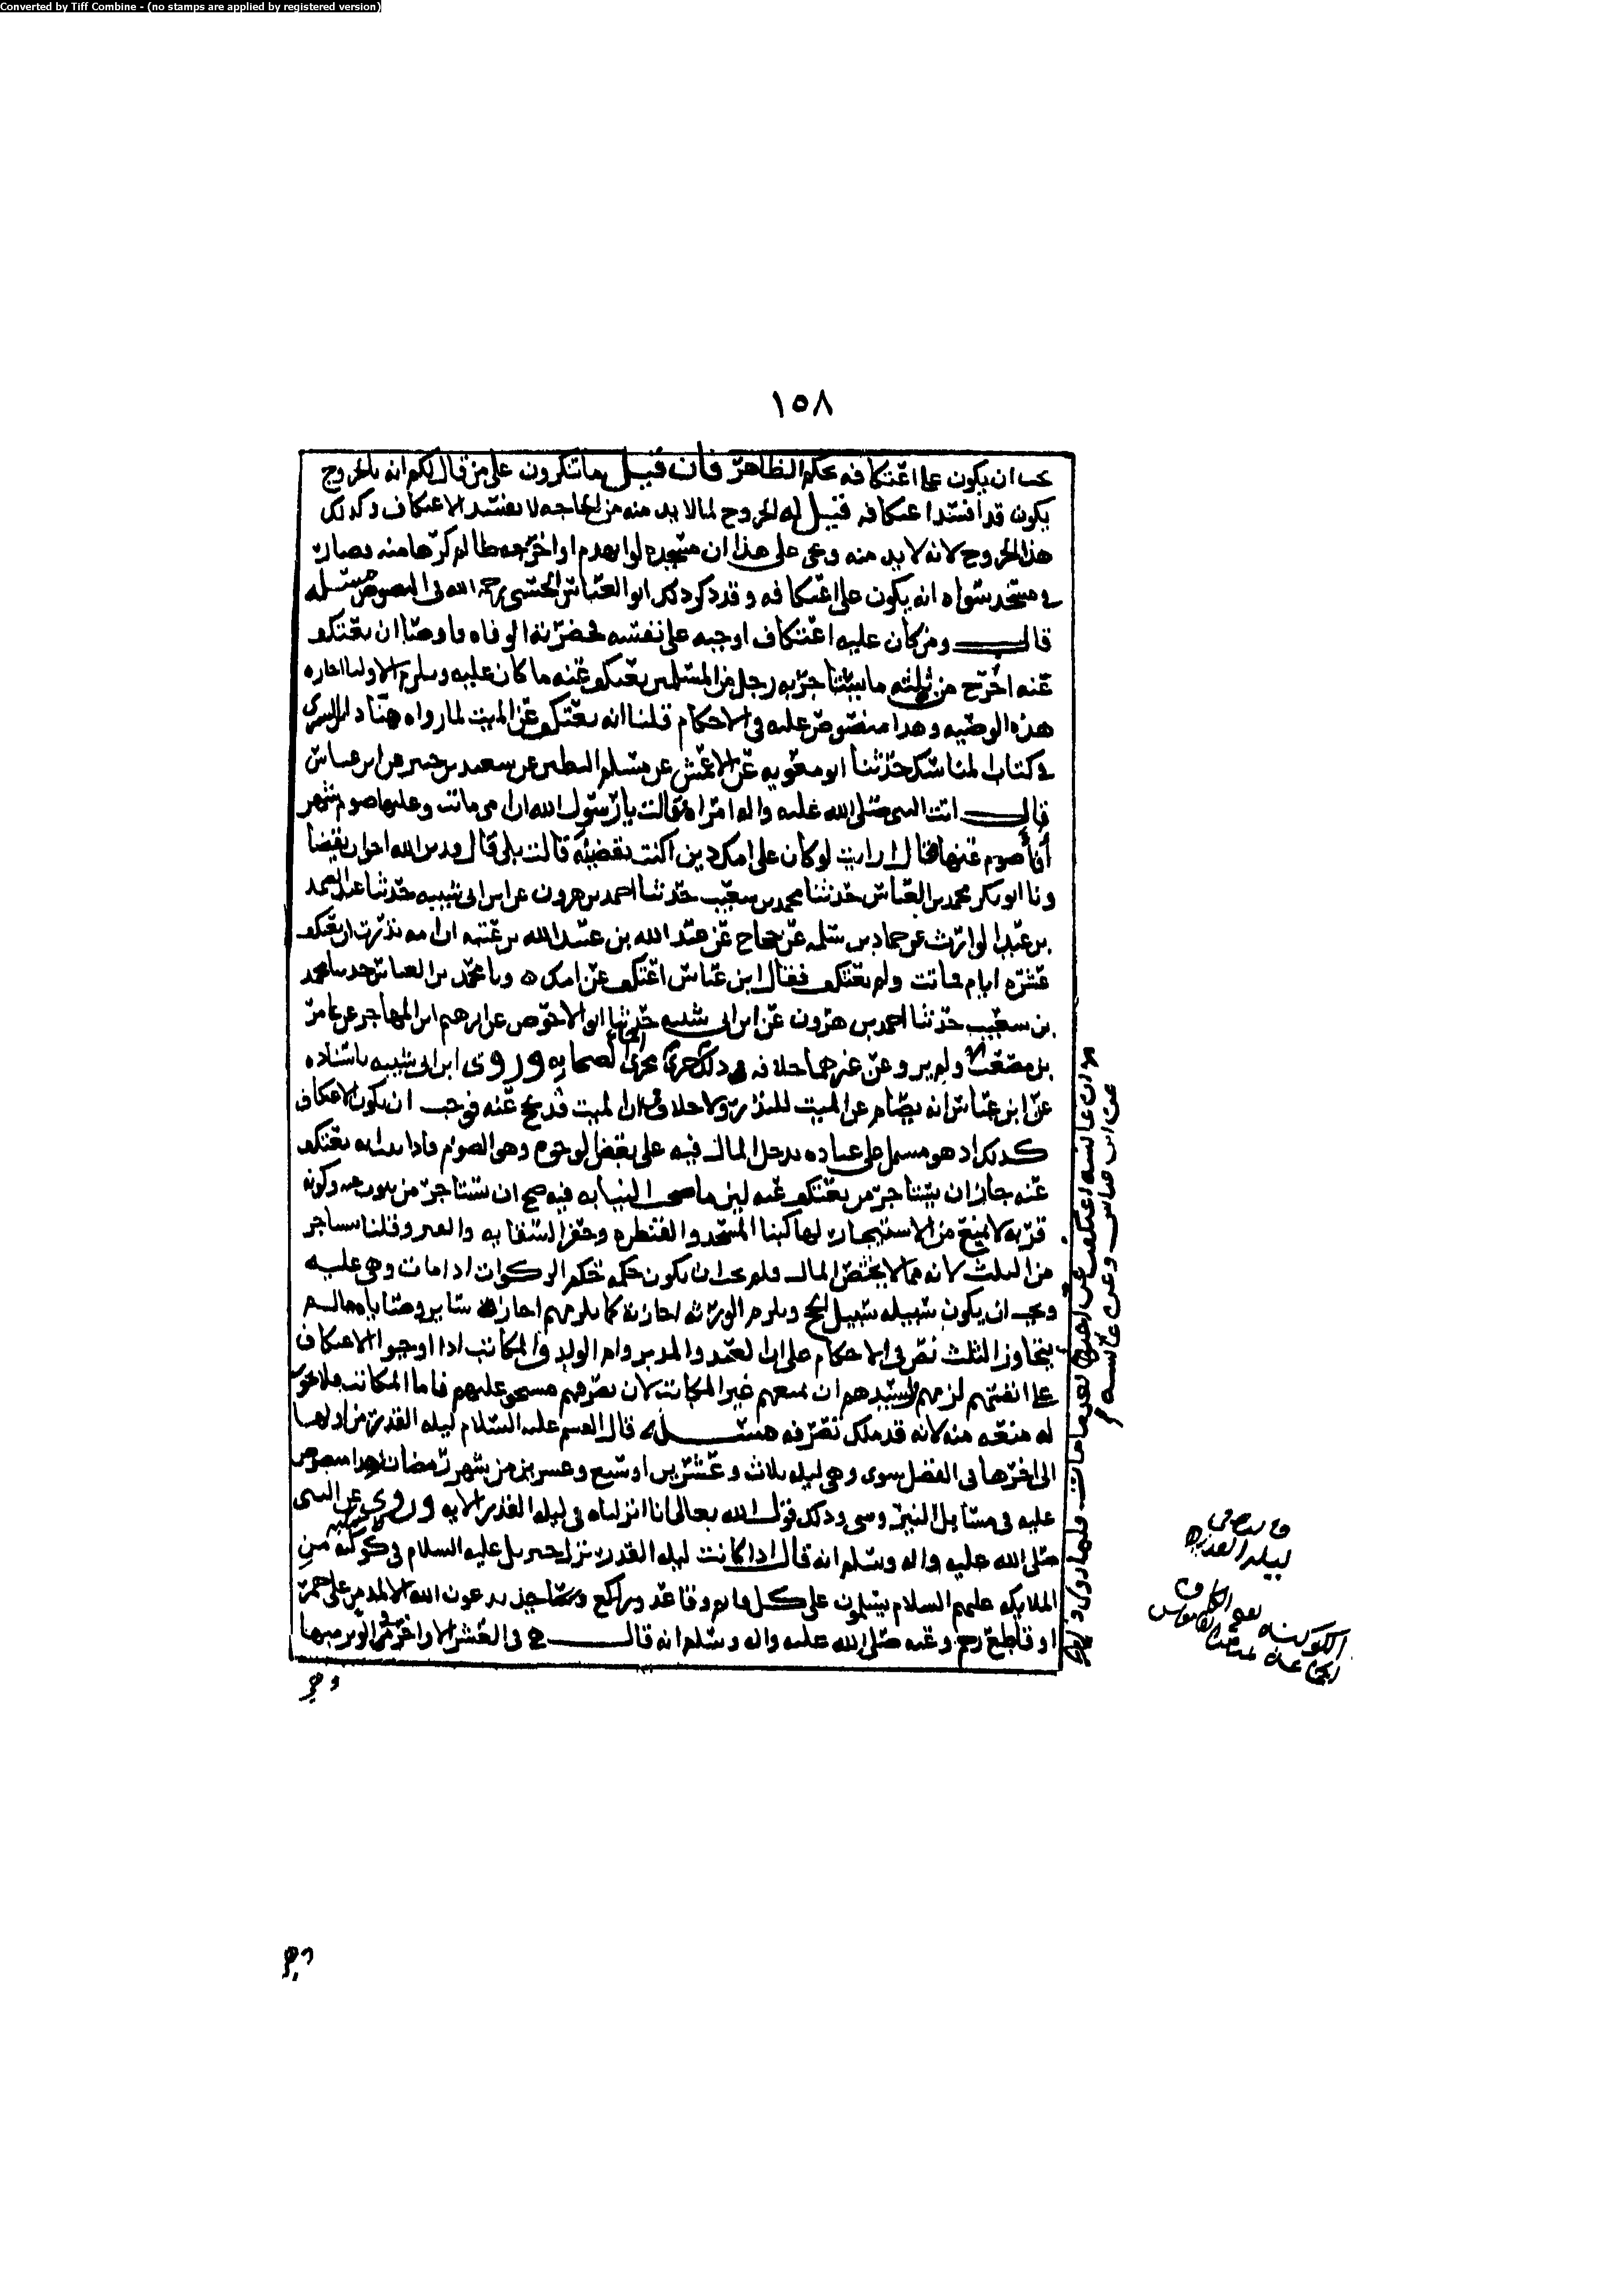 Converted by Tiff Combine - (no stamps are applied by registered version)
١٥٨
يجب ان يكون على اعتكافه بحكم الظاهر فان قيل بما تنكرون على من قال لكم انه بالخروج
يكون قد افسد اعتكافه قيل له الخروج لما لا بد منه من الحاجه لا يفسد الاعتكاف وكذلك
هذا الخروج لانه لا بد منه وعلى هذا ان مسجده لو انهدم او اخرجه ظالم كرها منه فصار
في مسجد سواه انه يكون على اعتكافه وقد ذكر ذلك ابو العباس الحسني رحمه الله في النصوص مسئله
قال ومن كان عليه اعتكاف اوجبه على نفسه فحضرته الوفاه فاوصا ان يعتكف
عنه اخرج من ثلثه ما يستاجر به رجل من المسلمين يعتكف عنه ما كان عليه ويلزم الاوليا اجازه
هذه الوصيه وهذا منصوص عليه في الاحكام قلنا انه يعتكف عن الميت لما رواه هناد بن السري
في كتاب المناسك حدثنا ابو معويه عن الاعمش عن مسلم البطين عن سعيد بن جبير عن ابن عباس
قال اتت النبي صلى الله عليه واله امراه فقالت يا رسول الله ان امي ماتت وعليها صوم شهر
أفأصوم عنها فقال ارايت لو كان على امك دين اكنت تقضيه قالت بلى قال فدين الله احق ان يقضا
ونا ابو بكر محمد بن العباس حدثنا محمد بن سعيب حدثنا احمد بن هرون عن ابن ابي شيبه حدثنا عبد الصمد
بن عبد الوارث عن حماد بن سلمه عن حجاج عن عبد الله بن عبد الله بن عتبه ان امه نذرت ان تعتكف
عشره ايام فماتت ولم تعتكف فقال ابن عباس اعتكف عن امك ونا محمد بن العباس حدثنا محمد
بن سعيب حدثنا احمد بن هرون عن ابن ابي شيبه حدثنا ابو الاحوص عن ابرهيم ابن المهاجر عن عامر
بن مصعب ولم يرو عن غيرهما خلافه في ذلك فجرى مجرى الصحابه وروى ابن ابي شيبه باسناده
عن ابن عباس انه يصام عن الميت للنذر ولا خلاف ان الميت قد يحج عنه فوجب ان يكون الاعتكاف
كذلك اذ هو مشتمل على عباده يدخل المال فيه على بعض الوجوه وهي الصوم فاذا ثبت انه يعتكف
عنه جاز ان يستاجر من يعتكف عنه لان ما صحت النيابه فيه صح ان يستاجر من ينوب عنه وكونه
قربه لا يمنع من الاستيجار لها كبنا المسجد والقنطره وحفر السقايه والقبر وقلنا يستاجر
من الثلث لانه مما لا يختص المال فلم يجب ان يكون حكمه حكم الزكوات اذا مات وهي عليه
وجب ان يكون سبيله سبيل الحج ويلزم الورثه اجازته كما يلزمهم اجازه سائر وصاياه مالم
يتجاوز الثلث نص في الاحكام على ان العبد والمدبر وام الولد والمكاتب اذا اوجبوا الاعتكاف
على انفسهم لزمهم ولسيدهم ان يمنعهم غير المكاتب لان تصرفهم مستحق عليهم فاما المكاتب فلا يجوز
له منعه منه لانه قد ملك تصرفه مسئله قال القسم عليه السلام ليله القدر من اولها
الى اخرها في الفضل سوى وهي ليله ثلاث وعشرين او سبع وعشرين من شهر رمضان وهذا منصوص
عليه في مسايل النيروسي وذلك قول الله تعالى انا انزلناه في ليله القدر الايه وروي عن النبي
صلى الله عليه واله وسلم انه قال اذا كانت ليله القدر نزل جبريل عليه السلام في كوكبه من
الملائكه عليهم السلام يسلمون على كل قايم وقاعد وراكع وساجد يدعون الله الا لمدمن على خمر
او قاطع رحم وعنه صلى الله عليه واله وسلم انه قال هي في العشر الاواخر في الوتر منها
عن ابن عباس وعن عائشه
ليله القدر